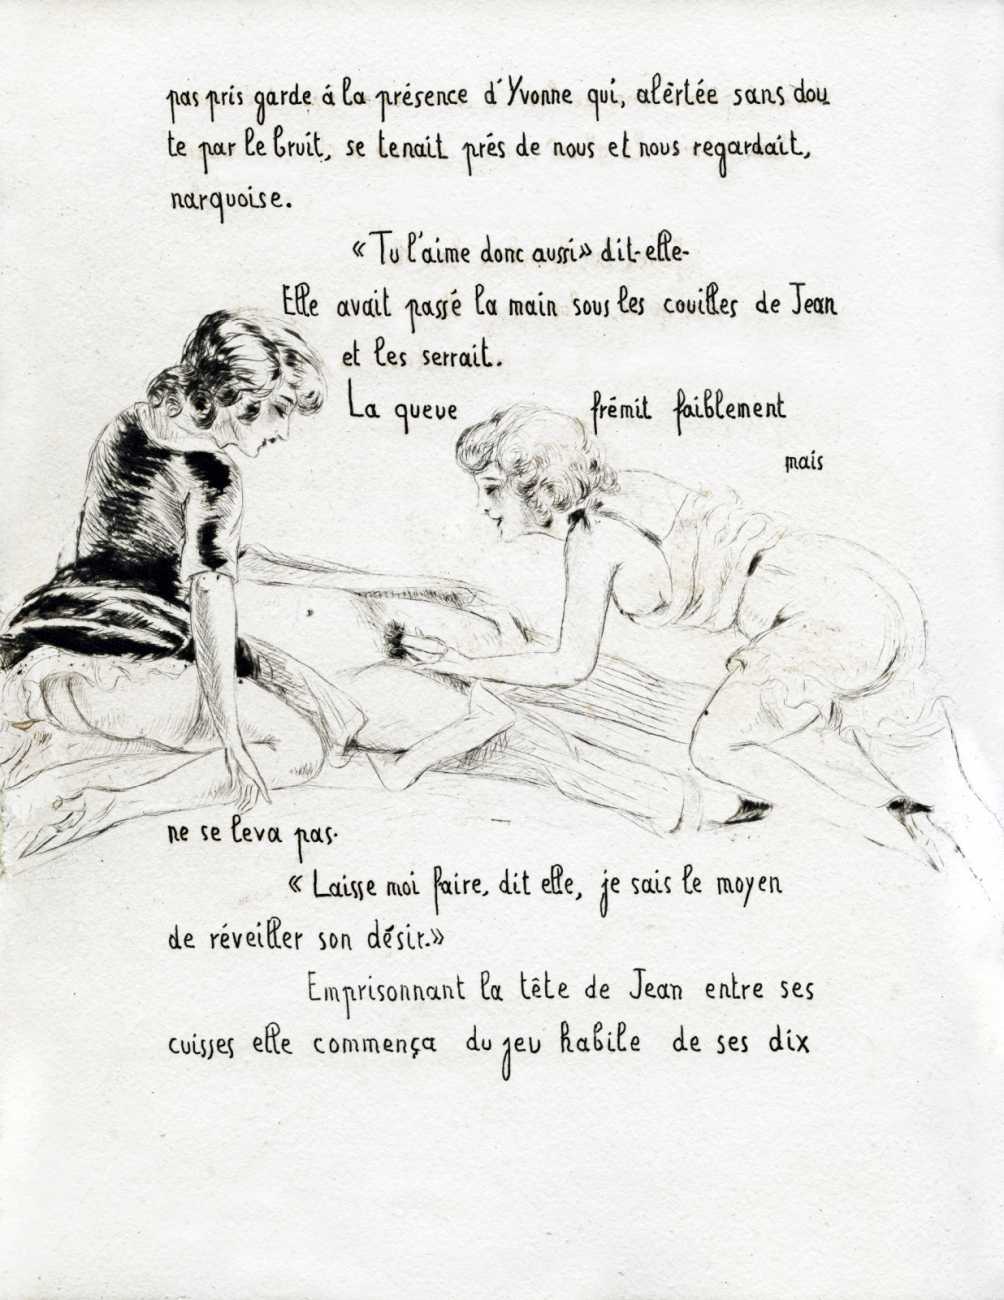 pas pris garde á la présence d'Yvonne qui, alèrtée sans dou
te par le bruit, se tenait prés de nous et nous regardait,
narquoise.
« Tu l'aime donc aussi» dit-elle-
Elle avait passé la main sous les couilles de Jean
et les serrait.
La queue frémit faiblement
mais
ne se leva pas.
« Laisse moi faire, dit elle, je sais le moyen
de réveiller son désir.»
Emprisonnant la tête de Jean entre ses
cuisses elle commença du jeu habile de ses dix